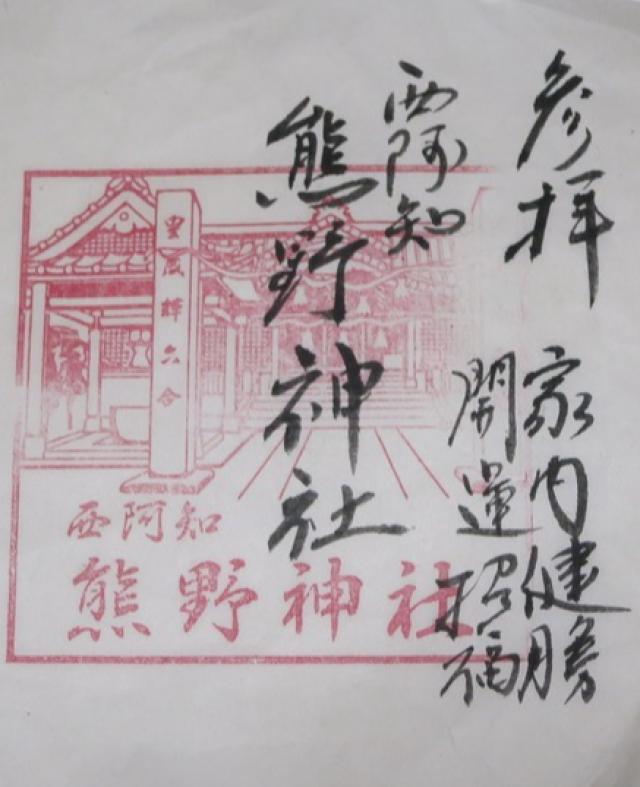 参拝
家内健勝
開運招福
西阿知
熊野神社
輝六合
西阿知
熊野神社